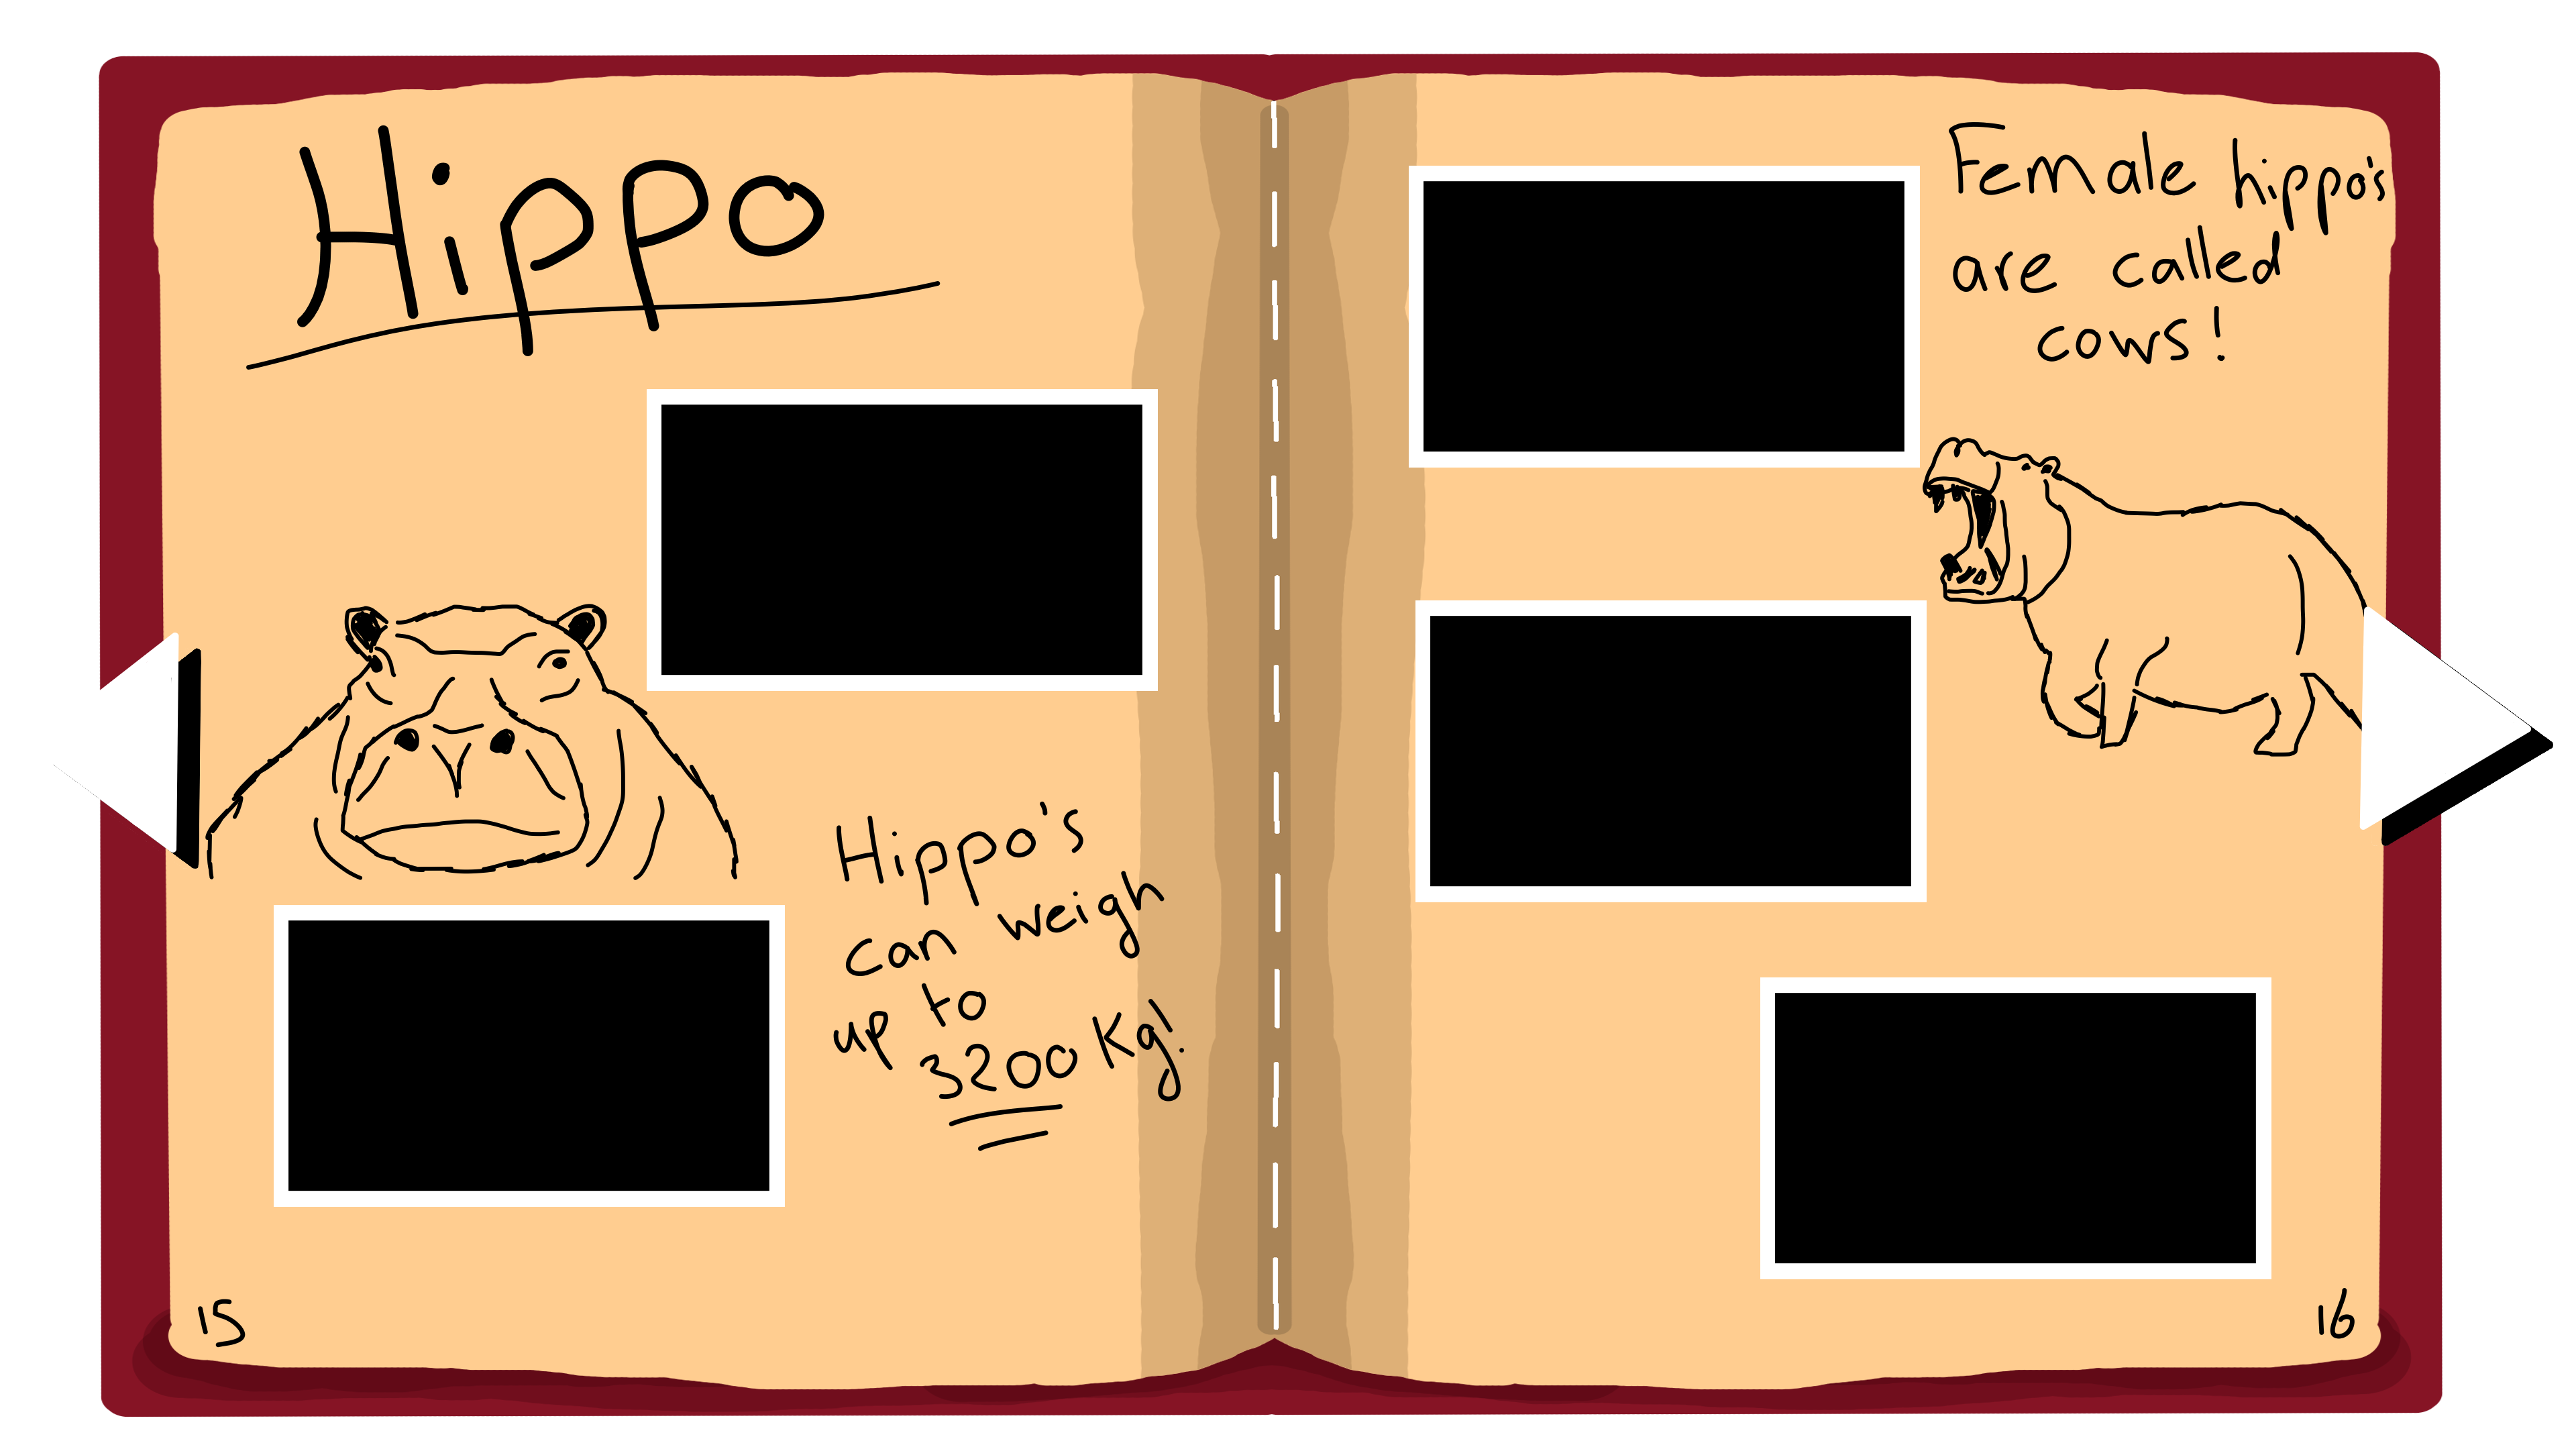 Hippo
Hippo's
can weigh
up to
3200 Kg!
15
Female hippo's
are called
cows!
16